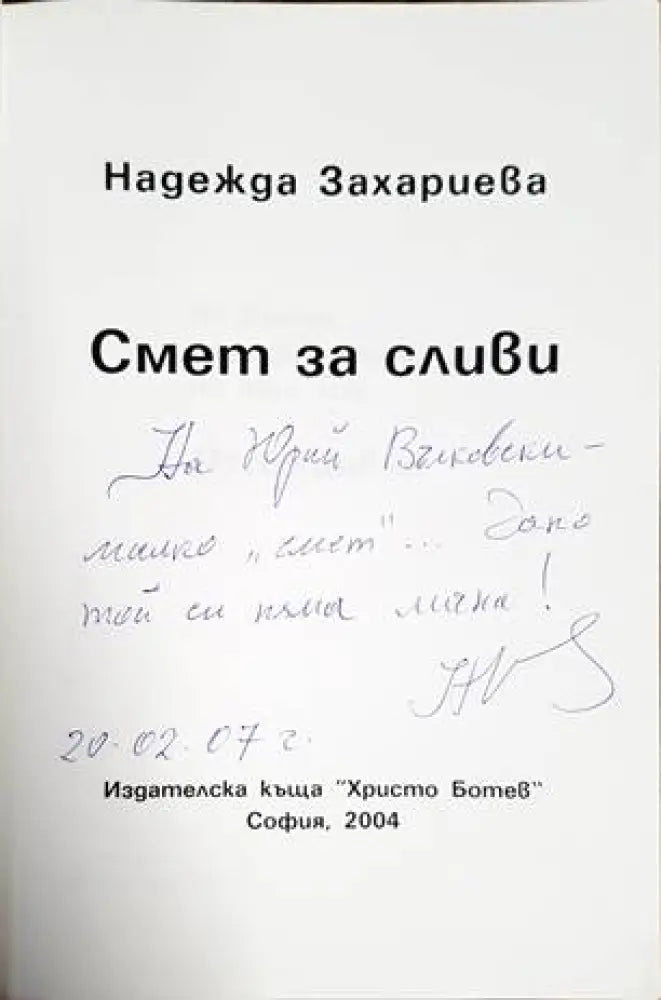 Надежда Захариева
Смет за сливи
На Юрий Вълковски –
малко „смет"... дано
той си няма мъка!
20.02.07 г.
Издателска къща "Христо Ботев"
София, 2004